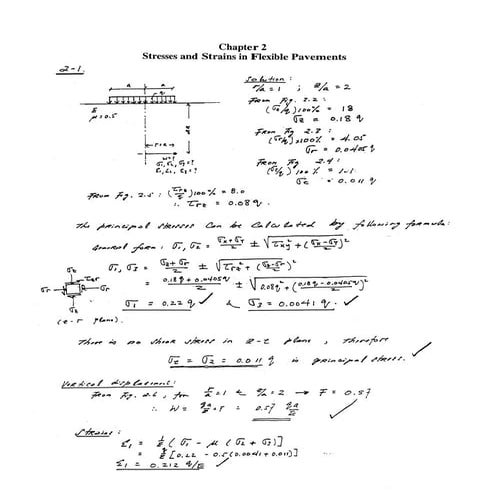 Chapter 2
Stresses and Strains in Flexible Pavements
2-1.
Solution:
r/a = 1 ; z/a = 2
From Fig. 2.2:
(σz/q)100% = 18
σz = 0.18 q
From Fig 2.3:
(σr/q)100% = 4.05
σr = 0.0405 q
From Fig. 2.4:
(σt/q)100% = 1.1
σt = 0.011 q
a a
q
E
μ = 0.5
2a
r = a
w = ?
σ1, σ2, σ3 = ?
ε1, ε3 = ?
From Fig. 2.5: (τrz/q)100% = 8.0
∴ τrz = 0.08 q.
The principal stresses can be calculated by following formula:
General form: σ1, σ2 = (σx+σy)/2 ± √(τxy² + ((σx-σy)/2)²)
σ1, σ3 = (σz+σr)/2 ± √(τrz² + ((σz-σr)/2)²)
= (0.18q + 0.0405q)/2 ± √(0.08q² + ((0.18q - 0.0405q)/2)²)
σ1 = 0.22 q ✓ & σ3 = 0.0041 q. ✓
σz
τzr
σr σr
σz
(z-r plane).
There is no shear stress in z-t plane, Therefore
σt = σ2 = 0.011 q is principal stress. ✓
Vertical displacement:
From Fig. 2.6, for r/a = 1 & z/a = 2 → F = 0.57
∴ W = qa/E * F = 0.57 qa/E ✓
Strains:
ε1 = 1/E [σ1 - μ (σ2 + σ3)]
= q/E [0.22 - 0.5(0.0041 + 0.011)]
ε1 = 0.212 q/E ✓